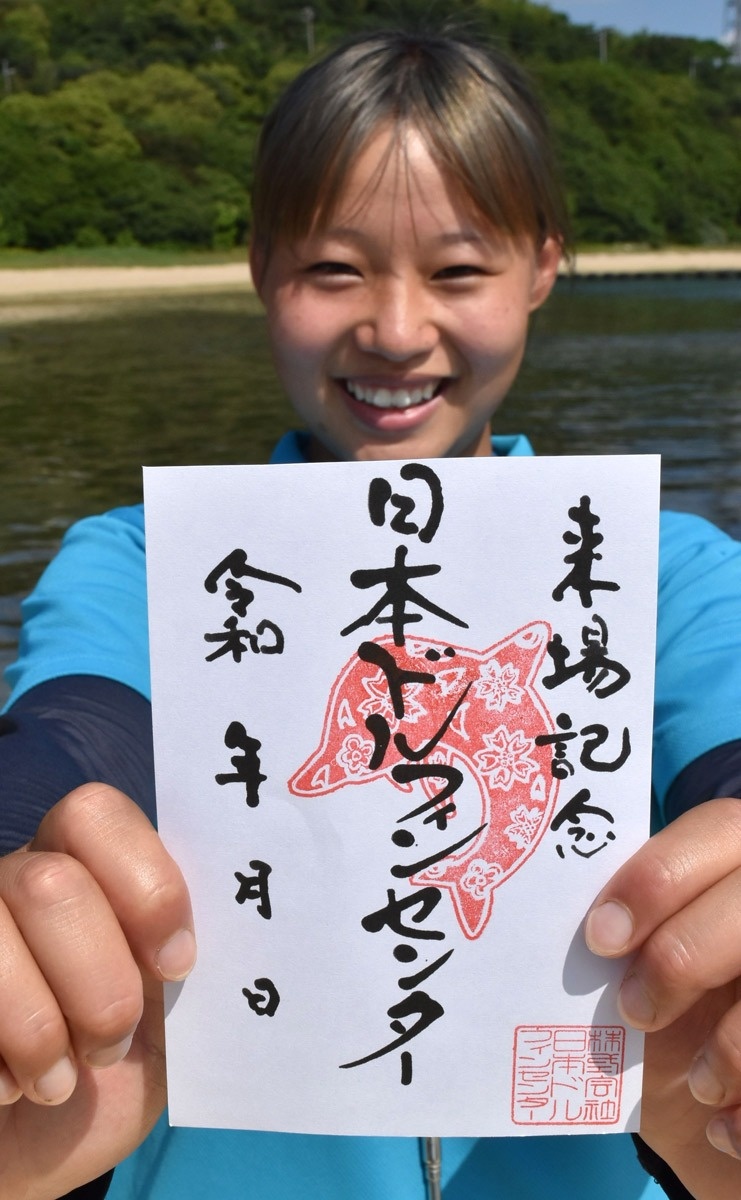 来場記念
日本ドルフィンセンター
令和 年 月 日
株式会社
日本ドル
フィンセンター